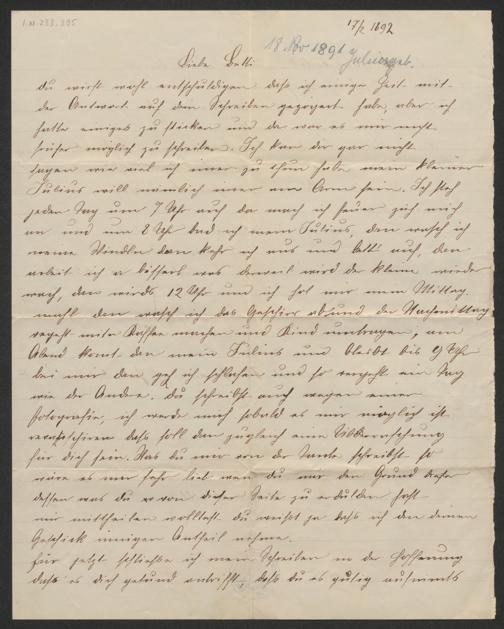 I.N. 233.395
17/2 1892
18. Nov 1891 Julius geb.
Liebe Betti
du wirst wohl entschuldigen daß ich einige Zeit mit
der Antwort auf dein Schreiben gezögert habe, aber ich
hatte einiges zu sticken und da war es mir nicht
früher möglich zu schreiben. Ich kan dir gar nicht
sagen wie viel ich imer zu thun habe mein kleiner
Julius will nämlich imer am Arm sein. Ich steh
jeden Tag um 7 Uhr auf da mach ich Feuer zieh mich
an und um 8 Uhr bad ich mein Julius, den wasch ich
meine Windln dan kehr ich aus und bett auf, den
arbeit ich a bisserl was derweil wird der kleine wieder
wach, den wirds 12 Uhr und ich hol mir mein Mittag
mahl den wasch ich das Geschirr ab und der Nachmittag
vergeht mit Kaffee machen und Kind umtragen, am
Abend komt den mein Julius und bleibt bis 9 Uhr
bei mir den geh ich schlafen und so vergeht ein Tag
wie der Andere. du schreibst auch wegen einer
Fotografie, ich werde mich sobald es mir möglich ist
daß soll den zugleich eine Überraschung
für dich sein. Was du mir von der Tante schreibst so
wäre es mir sehr lieb wen du mir den Grund
dessen was du von dieser Seite zu erdulden hast
mir mittheilen wolltest du weißt ja daß ich an deinem
Geschick innigen Antheil nehme.
für jetzt schließe ich mein Schreiben in der Hoffnung
daß es dich gesund antrifft, daß du es gütig aufnimst